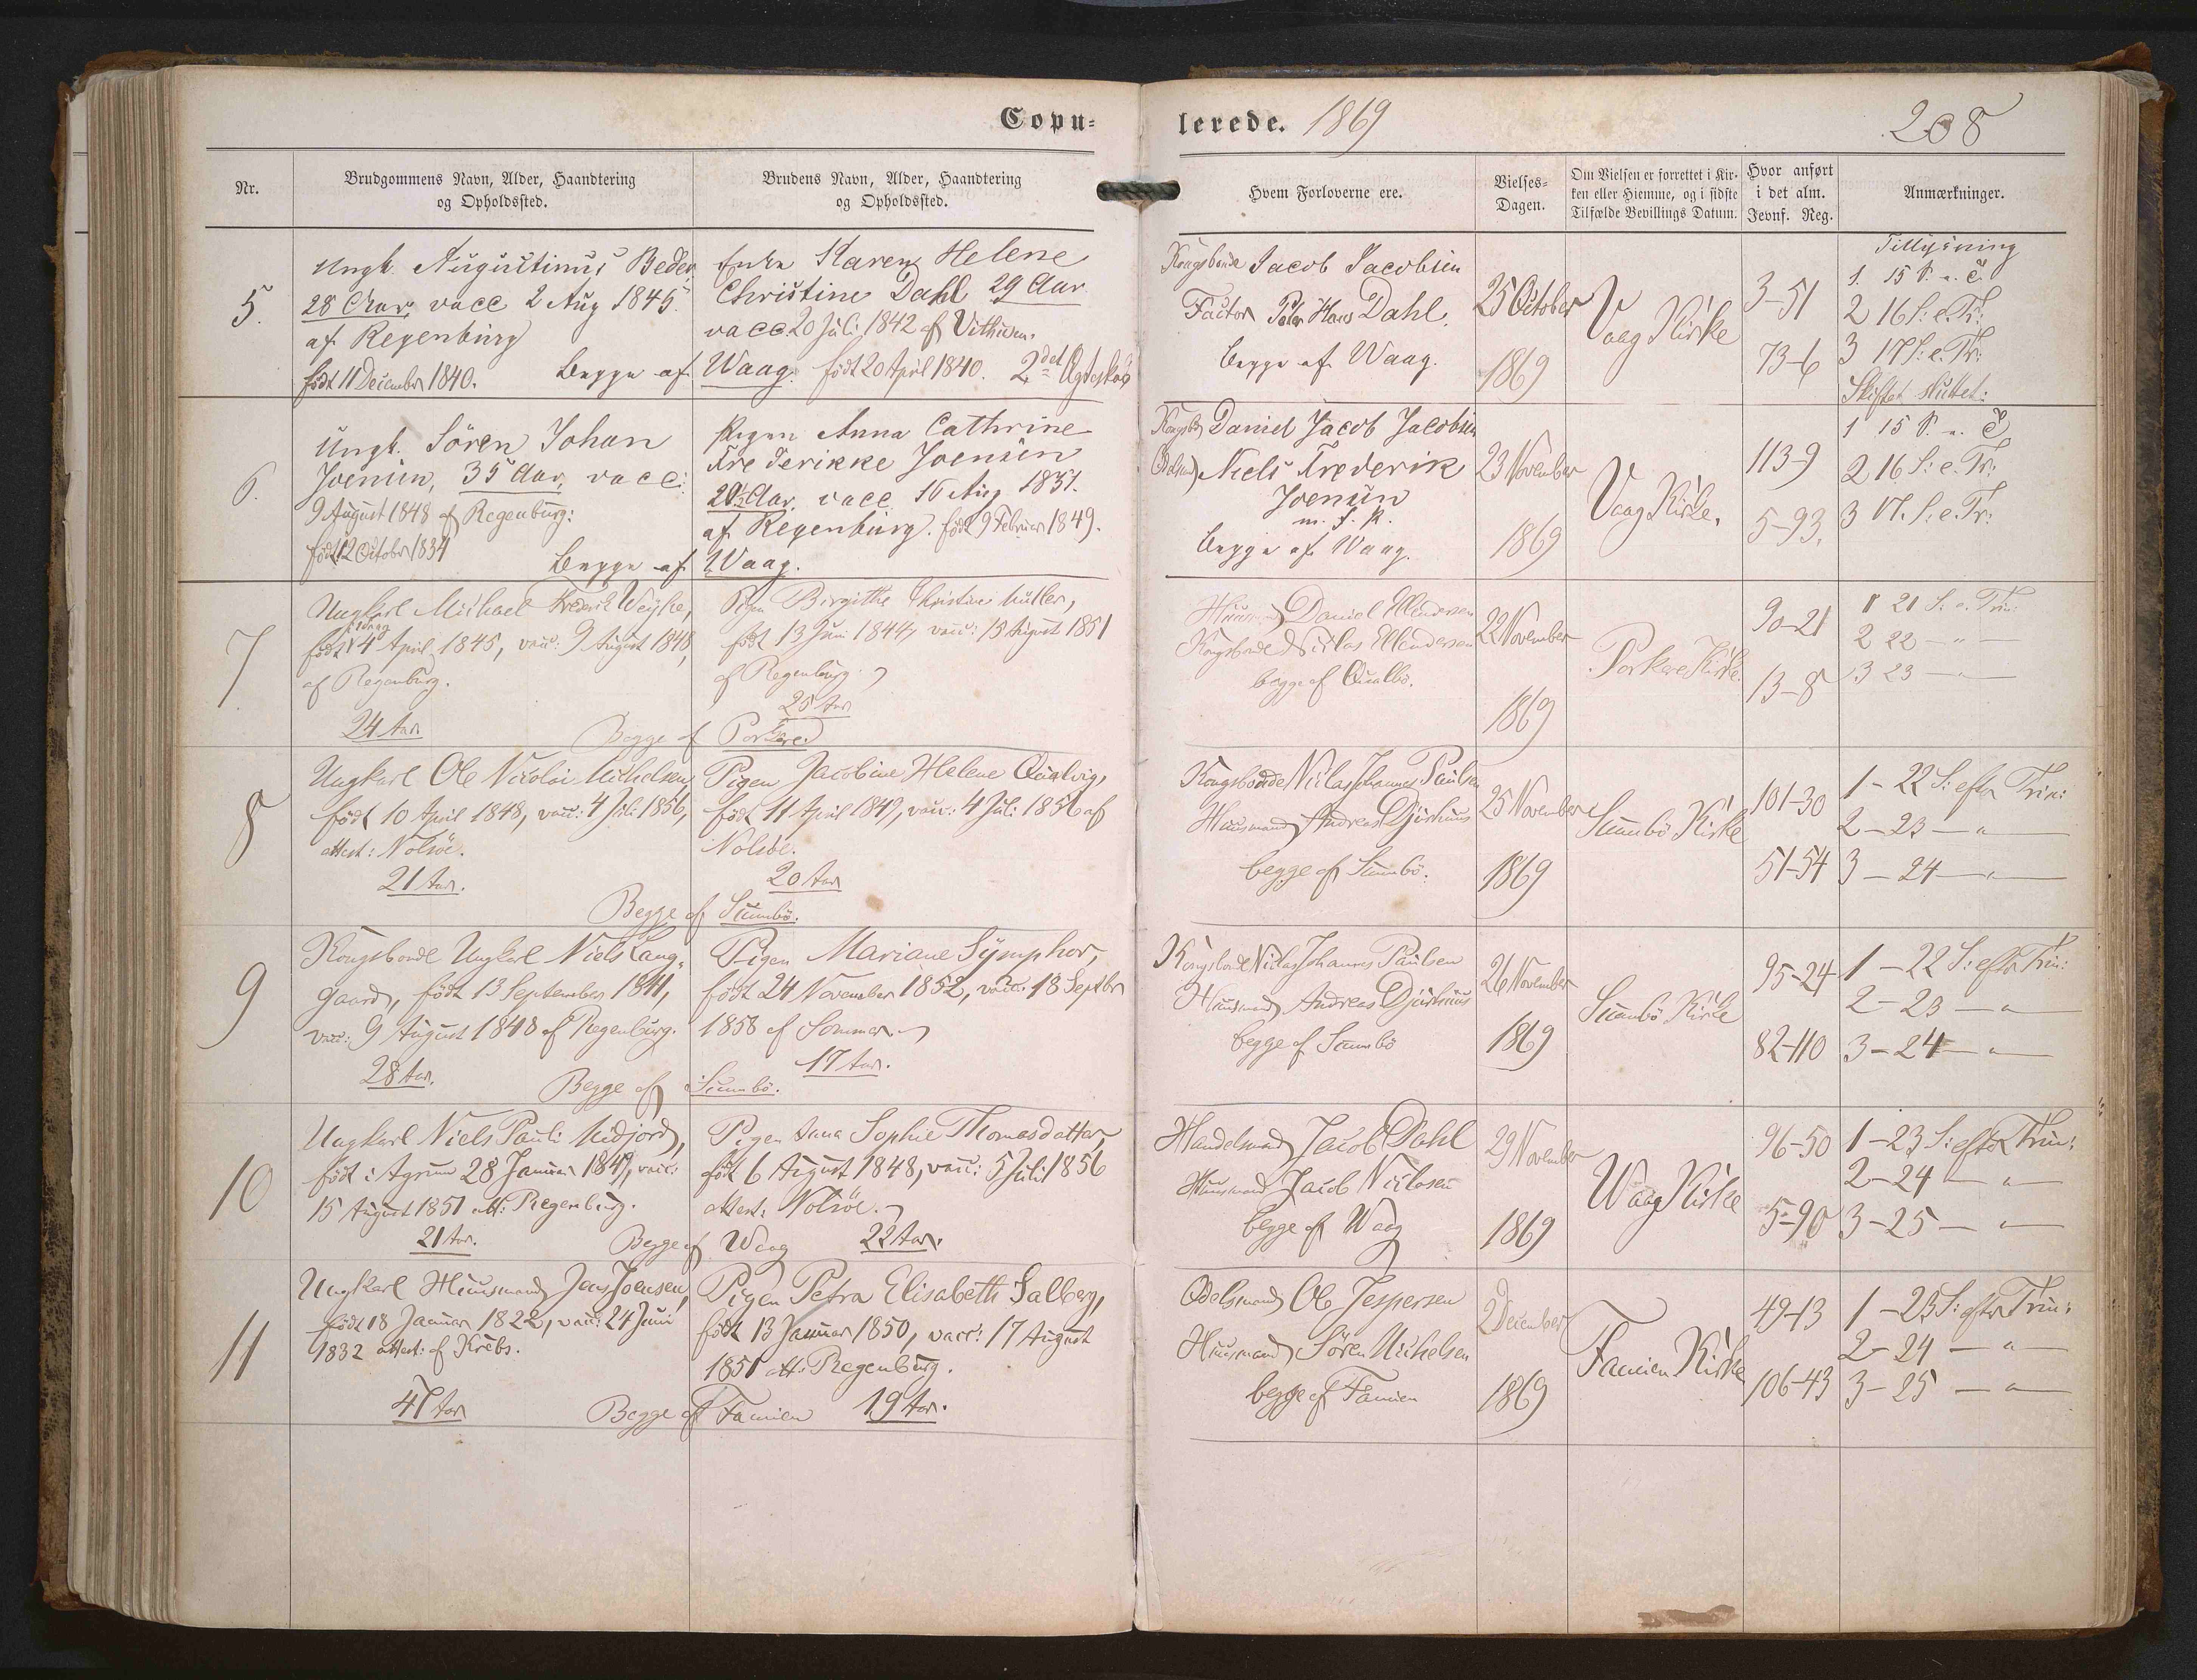 Copu=
lerede. 1869
208
Nr.
Brudgommens Navn, Alder, Haandtering
og Opholdssted.
Brudens Navn, Alder, Haandtering
og Opholdssted.
Hvem Forloverne ere.
Vielses-
Dagen.
Om Vielsen er forrettet i Kir-
ken eller Hjemme, og i sidste
Tilfælde Bevillings Datum.
Hvor anført
i det alm.
Jevnf. Reg.
Anmærkninger.
5.
Ungk. Augustinus Beder
28 Aar, vacc 2 Aug 1845.
af Regenburg
født 11 December 1840.
Begge af Waag.
Enke Karen Helene
Christine Dahl 29 Aar
vacc 20 Juli 1842 af
født 20 April 1840. 2det Ægteskab
Kongsbonde Jacob Jacobsen
Factor Peter Hans Dahl.
begge af Waag.
25 October
1869
Vaag Kirke
3-51
73-6
Tillysning
1. 15 S. e. T.
2 16 S: e. Tr:
3 17 S: e. Tr:
Skiftet sluttet:
6.
Ungk. Sören Johan
Joensen, 35 Aar, vacc:
9 August 1848 af Regenburg:
født 12 October 1834
Begge af Waag.
Pigen Anna Cathrine
Frederikke Joensen
20½ Aar, vacc. 16 Aug 1851.
af Regenburg. født 9 Februar 1849.
Daniel Jacob Jacobsen
Niels Frederik
Joensen
m. f. P.
begge af Waag.
23 November
1869
Vaag Kirke.
113-9
5-93.
1 15 S. e. T.
2 16 S: e. Tr:
3 17. S: e. Tr:
7
Ungkarl Michael Frederik Weyhe,
født 14 April 1845, vacc: 9 August 1848,
af Regenburg.
24 Aar
Begge af Porkere
Pigen Birgithe Christine Müller,
født 13 Juni 1844, vacc: 15 August 1851
af Regenburg
25 Aar
Huusmand Daniel Mendersen
Kongsbonde Niclas Mendersen
begge af Qualbö.
22 November
1869
Porkere Kirke.
90-21
13-8
1 21 S. e. Trin:
2 22 — " —
3 23 — " —
8
Ungkarl Ole Nicolai Michelsen
født 10 April 1848, vacc: 4 Juli 1856,
attest: Nolsöe.
21 Aar.
Begge af Sumbö.
Pigen Jacobine Helene Qualvig,
født 11 April 1849, vacc: 4 Juli 1856 af
Nolsöe.
20 Aar
Kongsbonde Niclas Johannes Paulsen
Huusmand Andreas Djurhuus
begge af Sumbö.
25 November
1869
Sumbö Kirke
101-30
51-54
1 - 22 S: efter Trin:
2 - 23 — " —
3 - 24 — " —
9
Kongsbonde Ungkarl Niels Lang-
gaard, født 13 September 1841,
vacc: 9 August 1848 af Regenburg.
28 Aar.
Begge af Sumbö.
Pigen Mariane Symphor,
født 24 November 1852, vacc: 18 Septbr
1858 af Sommer.
17 Aar.
Kongsbonde Niclas Johannes Paulsen
Huusmand Andreas Djurhuus
begge af Sumbö
26 November
1869
Sumbö Kirke
95-24
82-110
1 - 22 S: efter Trin:
2 - 23 — " —
3 - 24 — " —
10
Ungkarl Niels Pauli Midjord,
født i Agrum 28 Januar 1849, vacc:
15 August 1851 att: Regenburg.
21 Aar.
Begge af Waag
Pigen Anna Sophie Thomasdatter,
født 6 August 1848, vacc: 5 Juli 1856
attest: Nolsöe.
22 Aar.
Handelsmand Jacob Dahl
Huusmand Jacob Niclasen
begge af Waag
29 November
1869
Waag Kirke
96-50
5-90
1 - 23 S: efter Trin:
2 - 24 — " —
3 - 25 — " —
11
Ungkarl Huusmand Jens Joensen,
født 18 Januar 1822, vacc: 24 Juni
1832 attest: af Krebs.
47 Aar
Begge af Famien
Pigen Petra Elisabeth Salberg,
født 13 Januar 1850, vacc: 17 August
1851 att: Regenburg.
19 Aar.
Odelsmand Ole Jespersen
Huusmand Sören Michelsen
begge af Famien
2 December
1869
Famien Kirke
49-13
106-43
1 - 23 S: efter Trin:
2 - 24 — " —
3 - 25 — " —